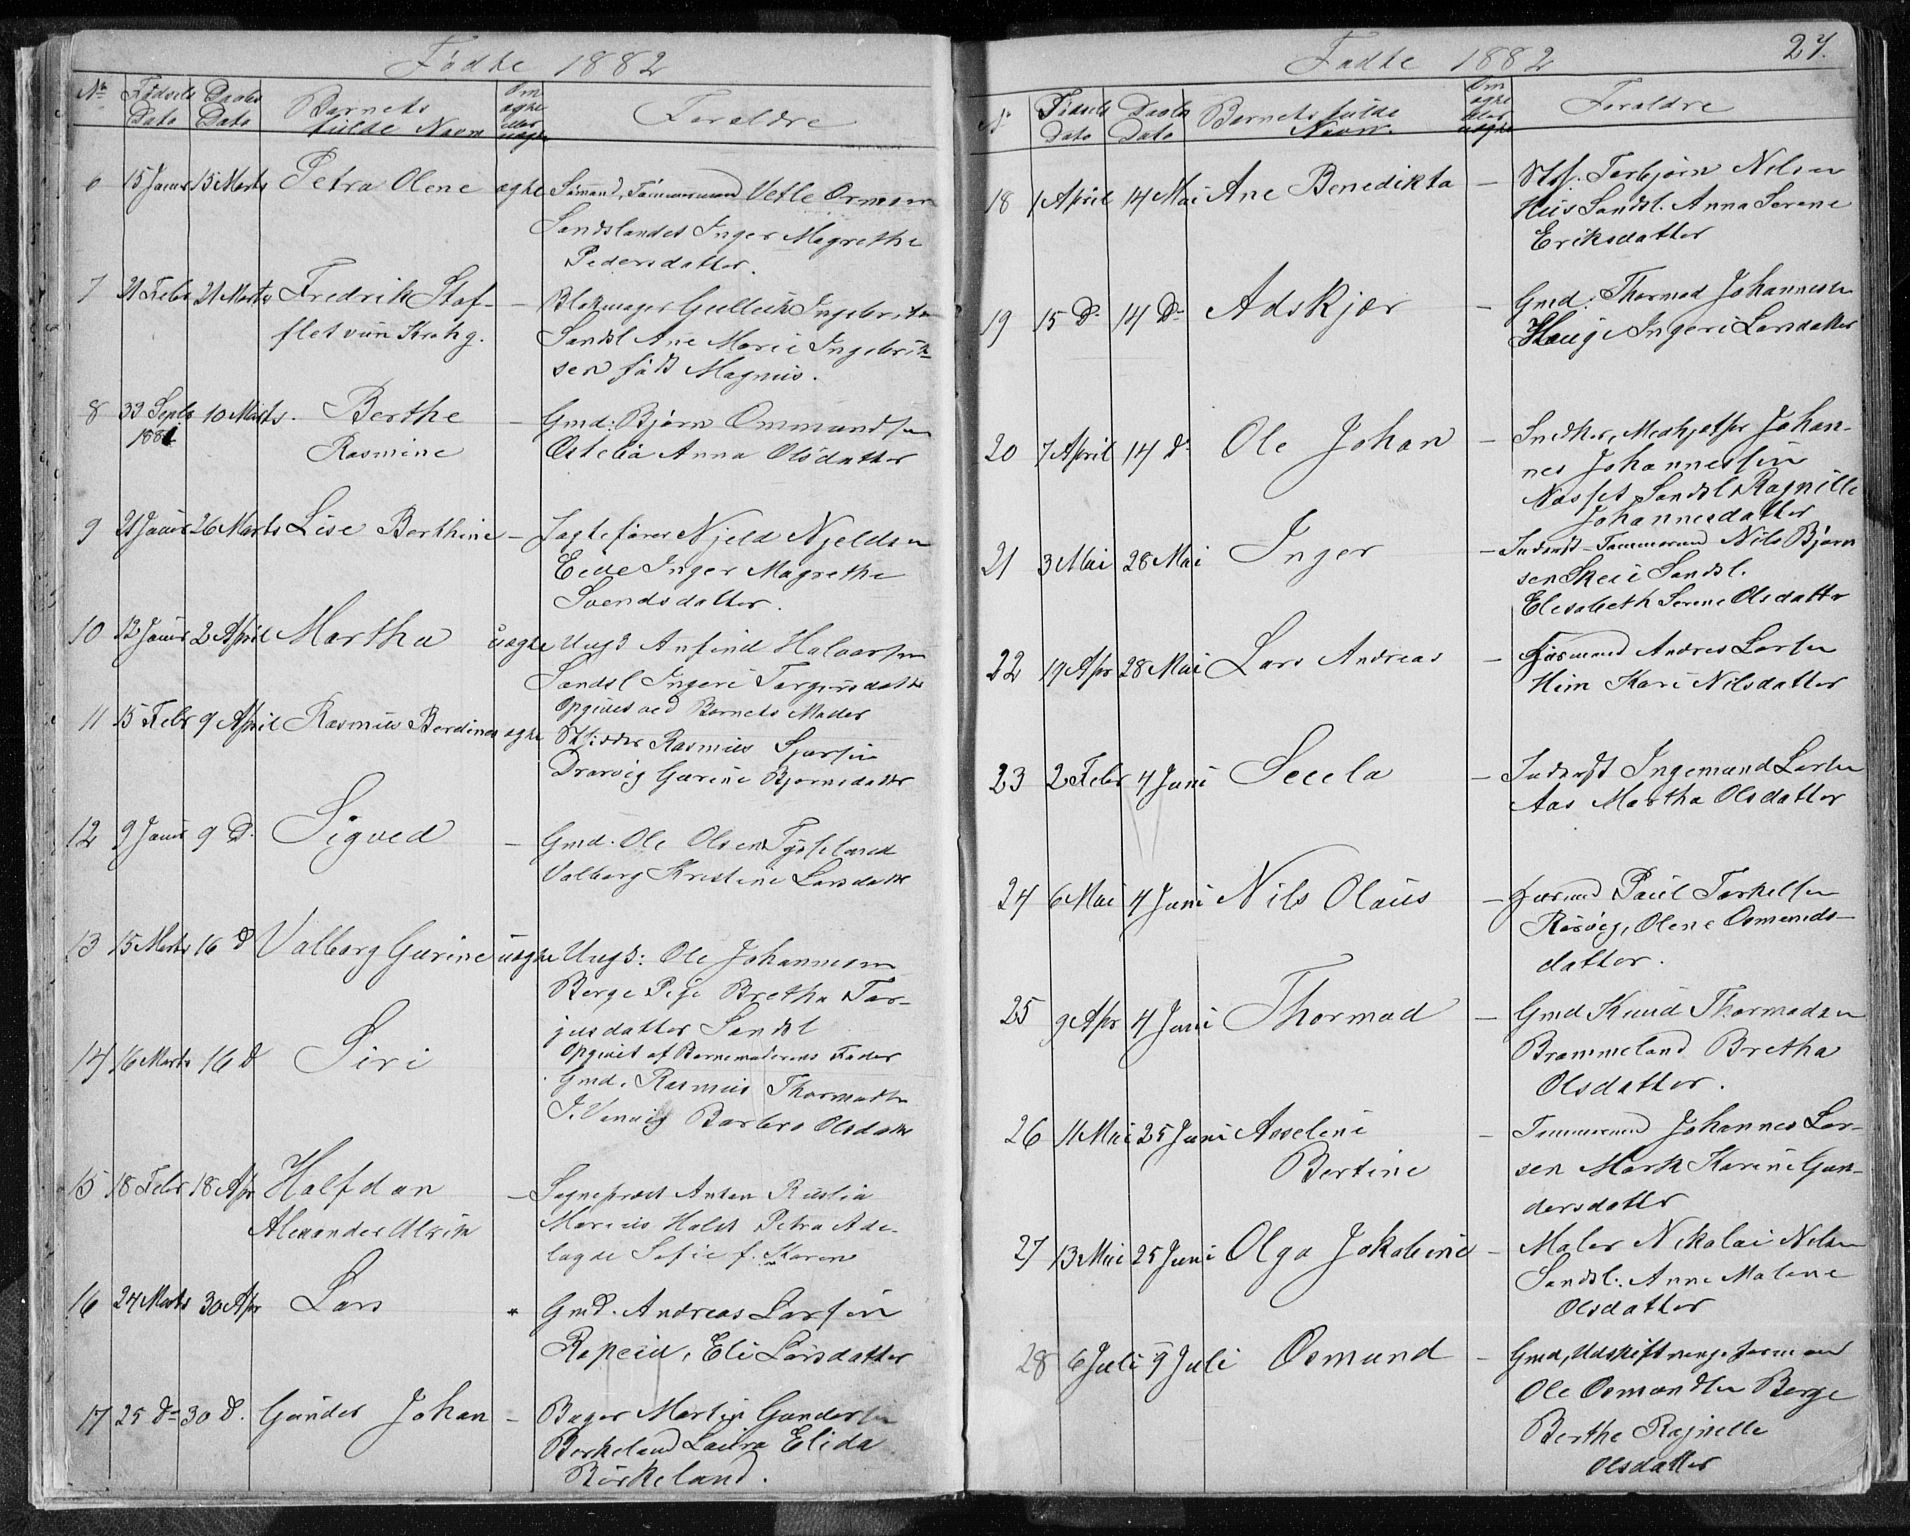 Fødte 1882
No Fødsels Dato Daabs Dato Barnets fulde Navn Om ægte eller uægte Foraldre
6 15 Janur 15 Marts Petra Olene ægte Sømand, Tømmermand Vetle Ormsen
Sandslandet Inger Magrethe
Pedersdatter.
7 21 Febr 21 Marts Fredrik Staf- — Blokmager Gullich
fletvun Sandsl Ane Marie Ingebrik-
sen født Magnus.
8 Septr 10 Marts. Berthe — Gmd: Bjørn Ommundsen
1881 Rasmine Østebø Anna Olsdatter
9 21 Janur 26 Marts Lise Berthine — Jagtefører Njeld Njeldsen
Eide Inger Magrethe
Svendsdatter.
10 12 Janur 2 April Martha uægte Ungk Anfind Halvorsen
Sandsl Ingeri
Opgivet ved Barnets Moder
11 15 Febr 9 April Rasmus Berdines ægte Rasmus
Drarvig Gurine Bjørnsdatter
12 9 Janr 9 D. Sigved — Gmd. Ole Olsen Tysseland
Valborg Kristine Larsdatter
13 15 Marts 16 d Valborg Gurine uægte Ungk: Ole Johannesen
Berge Pige Bretha Tor-
jusdatter Sandsl
Opgivet af Barnemoderens Fader
14 16 Marts 16 d Siri Gmd. Rasmus Thormodsen
J. Vanvig Barbro Olsdatter
15 18 Febr 18 Apr Halfdan — Sogneprest Anton
Alexander Ulrik Marius Holst Petra Ade-
lagde Sofie f. Koren
16 24 Marts 30 Apr Lars Gmd. Andreas Larsen
Ropeid, Eli Larsdatter
17 25 D 30 d. Gunder Johan — Bager Martin Gundersen
Berkeland Laura Elida
Birkeland.
Fødte 1882 27.
No Fødsels Dato Daabs Dato Barnets fulde Navn Om ægte eller uægte Foraldre
18 1 April 14 Mai Ane Benedikta — Torbjørn Nilsen
Sandsl. Anna Serene
Eriksdatter
19 15 D 14 D Adskjær — Gmd. Thormod Johannesen
Haugi Ingeri Larsdatter
20 7 April 14 d Ole Johan — Snedker, Johan-
nes Johannessen
Næsset Sandsl Ragnille
Johannesdatter
21 3 Mai 28 Mai Inger — Inderst-Tømmermd Nils Bjørn
sen Skeie Sandsl.
Elisabeth Serene Olsdatter
22 19 Apr 28 Mai Lars Andreas — Andres Larsen
Hiim Kari Nilsdatter
23 2 Febr 4 Juni Secela — Inderst Ingemund Larsen
Aas Martha Olsdatter
24 6 Mai 4 Juni Nils Olaus — Paul Torkelsen
Røsvig, Olene Osmunds-
datter.
25 9 Apr 4 Juni Thormod — Gmd Knud Thormodsen
Brommeland Bretha
Olsdatter.
26 11 Mai 25 Juni Asseline — Tømmermd Johannes Lar-
Bertine sen Mark Karine Gun-
dersdatter
27 13 Mai 25 Juni Olga Jakobine — Maler Nikolai Nilsen
Sandsl. Anne Malene
Olsdatter
28 6 Juli 9 Juli Osmund — Gmd, Udskiftningsformand
Ole Osmundsen Berge
Berthe Ragnelle
Olsdatter